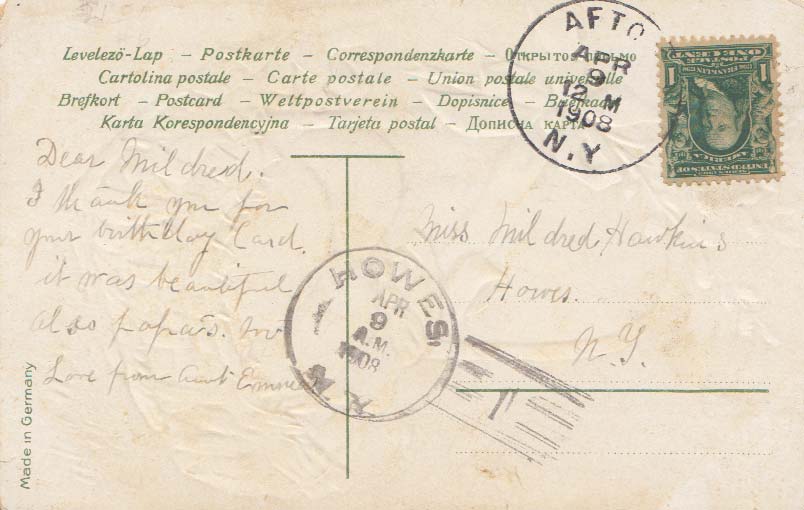 Levelező-Lap – Postkarte – Correspondenzkarte – Открытое письмо
Cartolina postale – Carte postale – Union postale universelle
Brefkort – Postcard – Weltpostverein – Dopisnice – Briefkaart
Karta Korespondencyjna – Tarjeta postal – Дописна карта
AFTO
APR
9
12 M
1908
N.Y
1 1
Dear Mildred.
I thank you for
your birthday Card.
it was beautiful
also papa's.
Love from Aunt
Miss Mildred Hawkins
Howes.
N.Y.
HOWES,
APR
9
A.M.
1908
N.Y.
1
Made in Germany